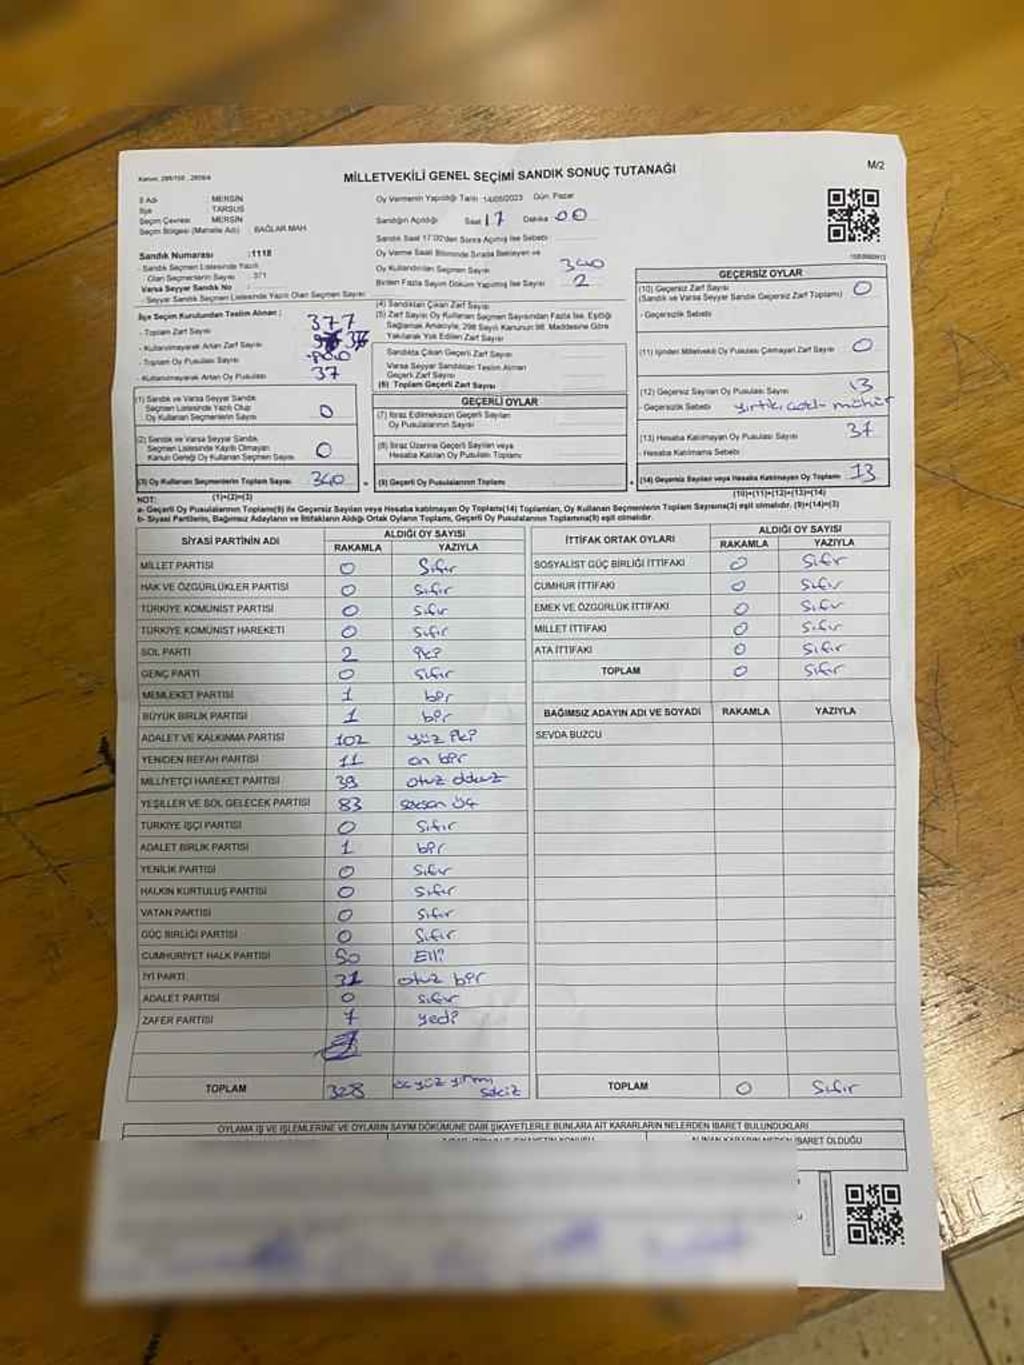 MİLLETVEKİLİ GENEL SEÇİMİ SANDIK SONUÇ TUTANAĞI
M/2
İl Adı MERSİN
İlçe TARSUS
Seçim Çevresi MERSİN
Seçim Bölgesi (Mahalle Adı) BAĞLAR MAH.
Oy Vermenin Yapıldığı Tarih 14/05/2023 Gün Pazar
Sandığın Açıldığı Saat 17 Dakika 00
Sandık Saat 17:00'den Sonra Açılmış İse Sebebi
Sandık Numarası :1118
- Sandık Seçmen Listesinde Yazılı
Olan Seçmenlerin Sayısı : 371
Varsa Seyyar Sandık No :
- Seyyar Sandık Seçmen Listesinde Yazılı Olan Seçmen Sayısı
Oy Verme Saati Bitiminde Sırada Bekleyen ve
Oy Kullandırılan Seçmen Sayısı 340
Birden Fazla Sayım Döküm Yapılmış İse Sayısı 2
İlçe Seçim Kurulundan Teslim Alınan :
- Toplam Zarf Sayısı 377
- Kullanılmayarak Artan Zarf Sayısı
- Toplam Oy Pusulası Sayısı
- Kullanılmayarak Artan Oy Pusulası 37
(1) Sandık ve Varsa Seyyar Sandık
Seçmen Listesinde Yazılı Olup
Oy Kullanan Seçmenlerin Sayısı 0
(2) Sandık ve Varsa Seyyar Sandık
Seçmen Listesinde Kayıtlı Olmayan
Kanun Gereği Oy Kullanan Seçmen Sayısı 0
(3) Oy Kullanan Seçmenlerin Toplam Sayısı 340
(1)+(2)=(3)
(4) Sandıktan Çıkan Zarf Sayısı
(5) Zarf Sayısı Oy Kullanan Seçmen Sayısından Fazla İse, Eşitliği
Sağlamak Amacıyla, 298 Sayılı Kanunun 98. Maddesine Göre
Yakılarak Yok Edilen Zarf Sayısı
Sandıkta Çıkan Geçerli Zarf Sayısı
Varsa Seyyar Sandıktan Teslim Alınan
Geçerli Zarf Sayısı
(6) Toplam Geçerli Zarf Sayısı
GEÇERLİ OYLAR
(7) İtiraz Edilmeksizin Geçerli Sayılan
Oy Pusulalarının Sayısı
(8) İtiraz Üzerine Geçerli Sayılan veya
Hesaba Katılan Oy Pusulası Toplamı
(9) Geçerli Oy Pusulalarının Toplamı
GEÇERSİZ OYLAR
(10) Geçersiz Zarf Sayısı 0
(Sandık ve Varsa Seyyar Sandık Geçersiz Zarf Toplamı)
- Geçersizlik Sebebi
(11) İçinden Milletvekili Oy Pusulası Çıkmayan Zarf Sayısı 0
(12) Geçersiz Sayılan Oy Pusulası Sayısı 13
- Geçersizlik Sebebi
(13) Hesaba Katılmayan Oy Pusulası Sayısı 37
- Hesaba Katılmama Sebebi
(14) Geçersiz Sayılan veya Hesaba Katılmayan Oy Toplamı 13
(10)+(11)+(12)+(13)=(14)
NOT:
a- Geçerli Oy Pusulalarının Toplamı(9) ile Geçersiz Sayılan veya Hesaba katılmayan Oy Toplamı(14) Toplamları, Oy Kullanan Seçmenlerin Toplam Sayısına(3) eşit olmalıdır. (9)+(14)=(3)
b- Siyasi Partilerin, Bağımsız Adayların ve İttifakların Aldığı Ortak Oyların Toplamı, Geçerli Oy Pusulalarının Toplamına(9) eşit olmalıdır.
SİYASİ PARTİNİN ADI ALDIĞI OY SAYISI
RAKAMLA YAZIYLA
MİLLET PARTİSİ 0 Sıfır
HAK VE ÖZGÜRLÜKLER PARTİSİ 0 Sıfır
TÜRKİYE KOMÜNİST PARTİSİ 0 Sıfır
TÜRKİYE KOMÜNİST HAREKETİ 0 Sıfır
SOL PARTİ 2 iki
GENÇ PARTİ 0 Sıfır
MEMLEKET PARTİSİ 1 bir
BÜYÜK BİRLİK PARTİSİ 1 bir
ADALET VE KALKINMA PARTİSİ 102 yüz iki
YENİDEN REFAH PARTİSİ 11 on bir
MİLLİYETÇİ HAREKET PARTİSİ 39 otuz dokuz
YEŞİLLER VE SOL GELECEK PARTİSİ 83 seksen üç
TÜRKİYE İŞÇİ PARTİSİ 0 Sıfır
ADALET BİRLİK PARTİSİ 1 bir
YENİLİK PARTİSİ 0 Sıfır
HALKIN KURTULUŞ PARTİSİ 0 Sıfır
VATAN PARTİSİ 0 Sıfır
GÜÇ BİRLİĞİ PARTİSİ 0 Sıfır
CUMHURİYET HALK PARTİSİ 50 Elli
İYİ PARTİ 31 otuz bir
ADALET PARTİSİ 0 Sıfır
ZAFER PARTİSİ 7 yedi
TOPLAM 328 üç yüz yirmi sekiz
İTTİFAK ORTAK OYLARI ALDIĞI OY SAYISI
RAKAMLA YAZIYLA
SOSYALİST GÜÇ BİRLİĞİ İTTİFAKI 0 Sıfır
CUMHUR İTTİFAKI 0 Sıfır
EMEK VE ÖZGÜRLÜK İTTİFAKI 0 Sıfır
MİLLET İTTİFAKI 0 Sıfır
ATA İTTİFAKI 0 Sıfır
TOPLAM 0 Sıfır
BAĞIMSIZ ADAYIN ADI VE SOYADI RAKAMLA YAZIYLA
SEVDA BUZCU
TOPLAM 0 Sıfır
OYLAMA İŞ VE İŞLEMLERİNE VE OYLARIN SAYIM DÖKÜMÜNE DAİR ŞİKAYETLERLE BUNLARA AİT KARARLARIN NELERDEN İBARET BULUNDUKLARI